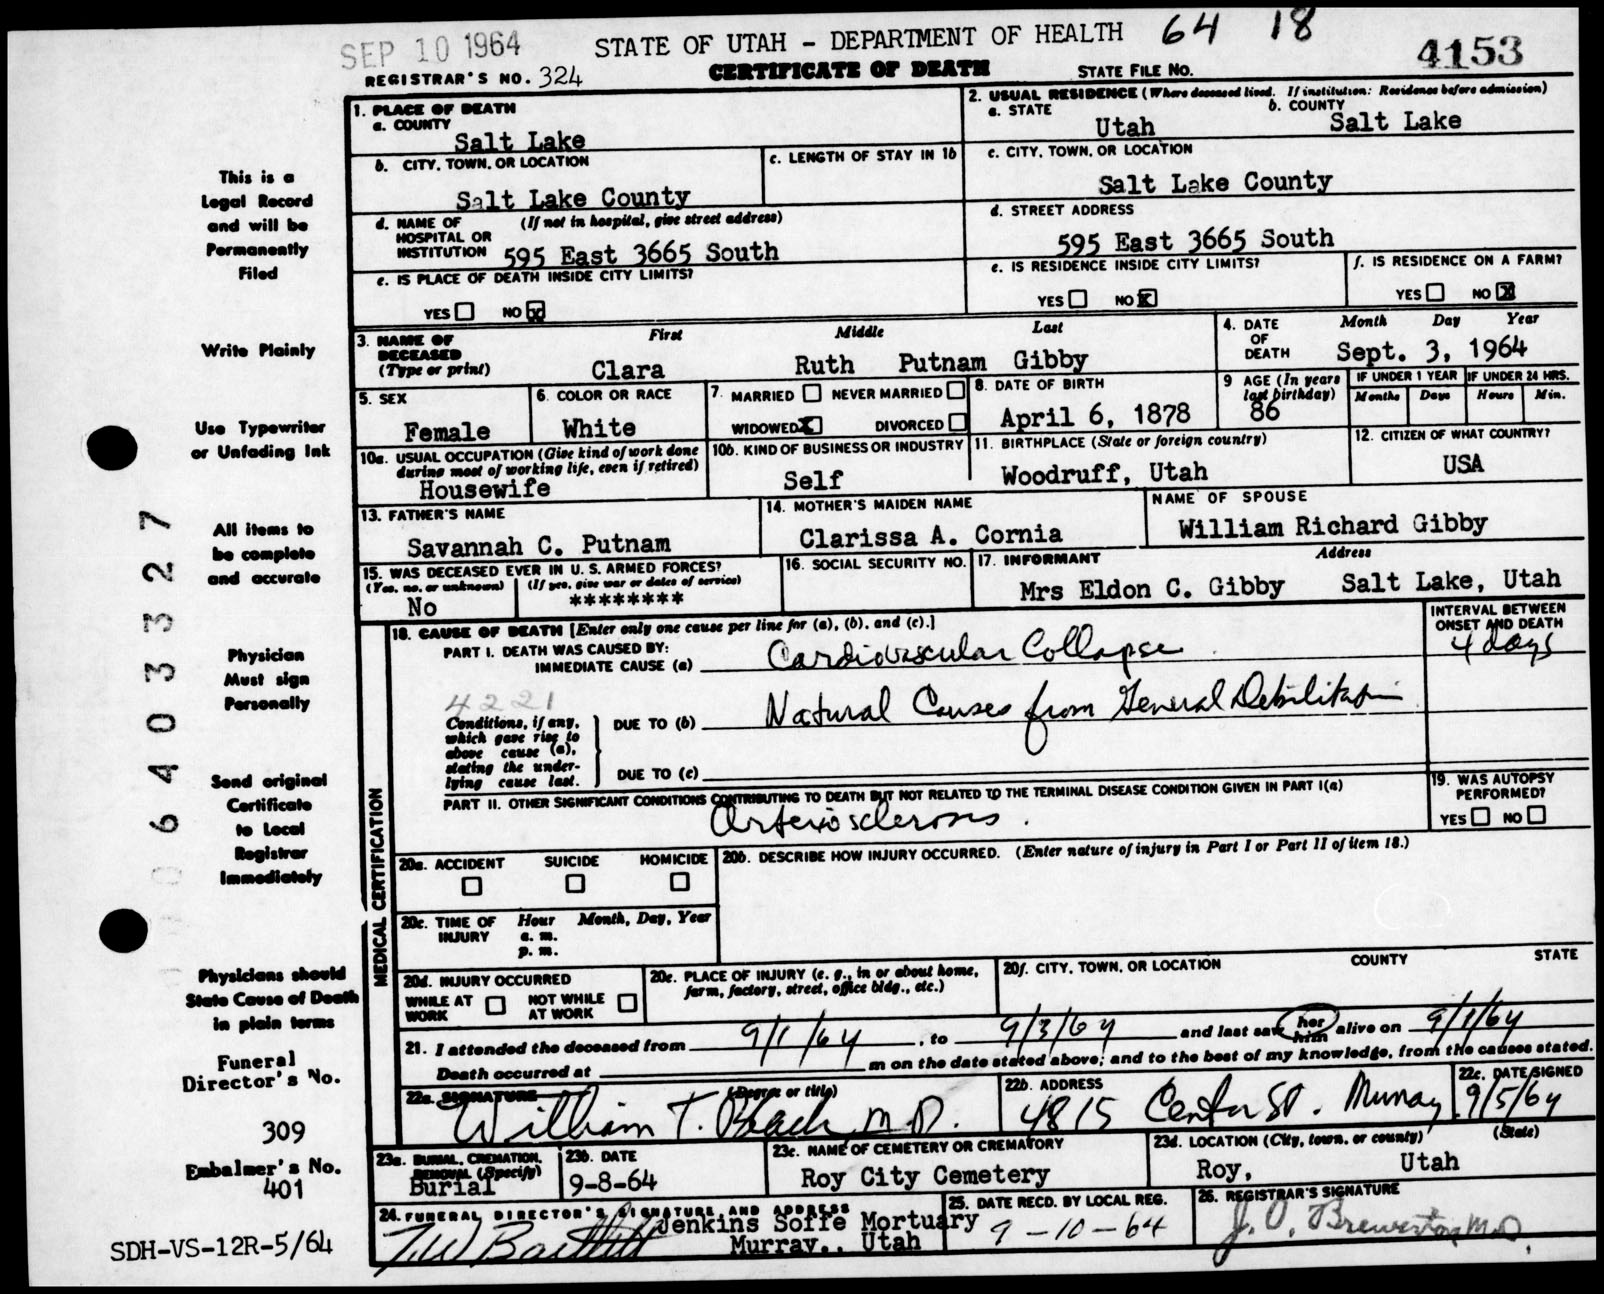 SEP 10 1964
STATE OF UTAH - DEPARTMENT OF HEALTH 64 18
REGISTRAR'S NO. 324
CERTIFICATE OF DEATH
STATE FILE NO. 4153
1. PLACE OF DEATH
a. COUNTY
Salt Lake
2. USUAL RESIDENCE (Where deceased lived. If institution: Residence before admission)
a. STATE
Utah
b. COUNTY
Salt Lake
b. CITY, TOWN, OR LOCATION
Salt Lake County
c. LENGTH OF STAY IN 1b
c. CITY, TOWN, OR LOCATION
Salt Lake County
d. NAME OF HOSPITAL OR INSTITUTION
(If not in hospital, give street address)
595 East 3665 South
d. STREET ADDRESS
595 East 3665 South
e. IS PLACE OF DEATH INSIDE CITY LIMITS?
YES NO X
e. IS RESIDENCE INSIDE CITY LIMITS?
YES NO X
f. IS RESIDENCE ON A FARM?
YES NO X
3. NAME OF DECEASED
(Type or print)
First Middle Last
Clara Ruth Putnam Gibby
4. DATE OF DEATH
Month Day Year
Sept. 3, 1964
5. SEX
Female
6. COLOR OR RACE
White
7. MARRIED NEVER MARRIED
WIDOWED X DIVORCED
8. DATE OF BIRTH
April 6, 1878
9 AGE (In years last birthday)
86
IF UNDER 1 YEAR
Months Days
IF UNDER 24 HRS.
Hours Min.
10a. USUAL OCCUPATION (Give kind of work done during most of working life, even if retired)
Housewife
10b. KIND OF BUSINESS OR INDUSTRY
Self
11. BIRTHPLACE (State or foreign country)
Woodruff, Utah
12. CITIZEN OF WHAT COUNTRY?
USA
13. FATHER'S NAME
Savannah C. Putnam
14. MOTHER'S MAIDEN NAME
Clarissa A. Cornia
NAME OF SPOUSE
William Richard Gibby
15. WAS DECEASED EVER IN U. S. ARMED FORCES?
(Yes, no, or unknown) (If yes, give war or dates of service)
No ********
16. SOCIAL SECURITY NO.
17. INFORMANT Address
Mrs Eldon C. Gibby Salt Lake, Utah
MEDICAL CERTIFICATION
18. CAUSE OF DEATH [Enter only one cause per line for (a), (b), and (c).]
INTERVAL BETWEEN ONSET AND DEATH
PART I. DEATH WAS CAUSED BY:
IMMEDIATE CAUSE (a) Cardiovascular Collapse 4 days
4221
Conditions, if any, which gave rise to above cause (a), stating the underlying cause last.
DUE TO (b) Natural Causes from General Debilitation
DUE TO (c)
PART II. OTHER SIGNIFICANT CONDITIONS CONTRIBUTING TO DEATH BUT NOT RELATED TO THE TERMINAL DISEASE CONDITION GIVEN IN PART I(a)
Arteriosclerosis.
19. WAS AUTOPSY PERFORMED?
YES NO
20a. ACCIDENT SUICIDE HOMICIDE
20b. DESCRIBE HOW INJURY OCCURRED. (Enter nature of injury in Part I or Part II of item 18.)
20c. TIME OF INJURY
Hour Month, Day, Year
a. m.
p. m.
20d. INJURY OCCURRED
WHILE AT WORK NOT WHILE AT WORK
20e. PLACE OF INJURY (e. g., in or about home, farm, factory, street, office bldg., etc.)
20f. CITY, TOWN, OR LOCATION COUNTY STATE
21. I attended the deceased from 9/1/64, to 9/3/64 and last saw her him alive on 9/1/64
Death occurred at m on the date stated above; and to the best of my knowledge, from the causes stated.
22a. SIGNATURE (Degree or title)
William T. Black M.D.
22b. ADDRESS
4815 Center St. Murray
22c. DATE SIGNED
9/5/64
23a. BURIAL, CREMATION, REMOVAL (Specify)
Burial
23b. DATE
9-8-64
23c. NAME OF CEMETERY OR CREMATORY
Roy City Cemetery
23d. LOCATION (City, town, or county) (State)
Roy, Utah
24. FUNERAL DIRECTOR'S SIGNATURE AND ADDRESS
Jenkins Soffe Mortuary
Murray,. Utah
25. DATE RECD. BY LOCAL REG.
9-10-64
26. REGISTRAR'S SIGNATURE
J. O. Brewerton M.D.
This is a
Legal Record
and will be
Permanently
Filed
Write Plainly
Use Typewriter
or Unfading Ink
All items to
be complete
and accurate
Physician
Must sign
Personally
Send original
Certificate
to Local
Registrar
Immediately
Physicians should
State Cause of Death
in plain terms
Funeral
Director's No.
309
Embalmer's No.
401
SDH-VS-12R-5/64
06403327